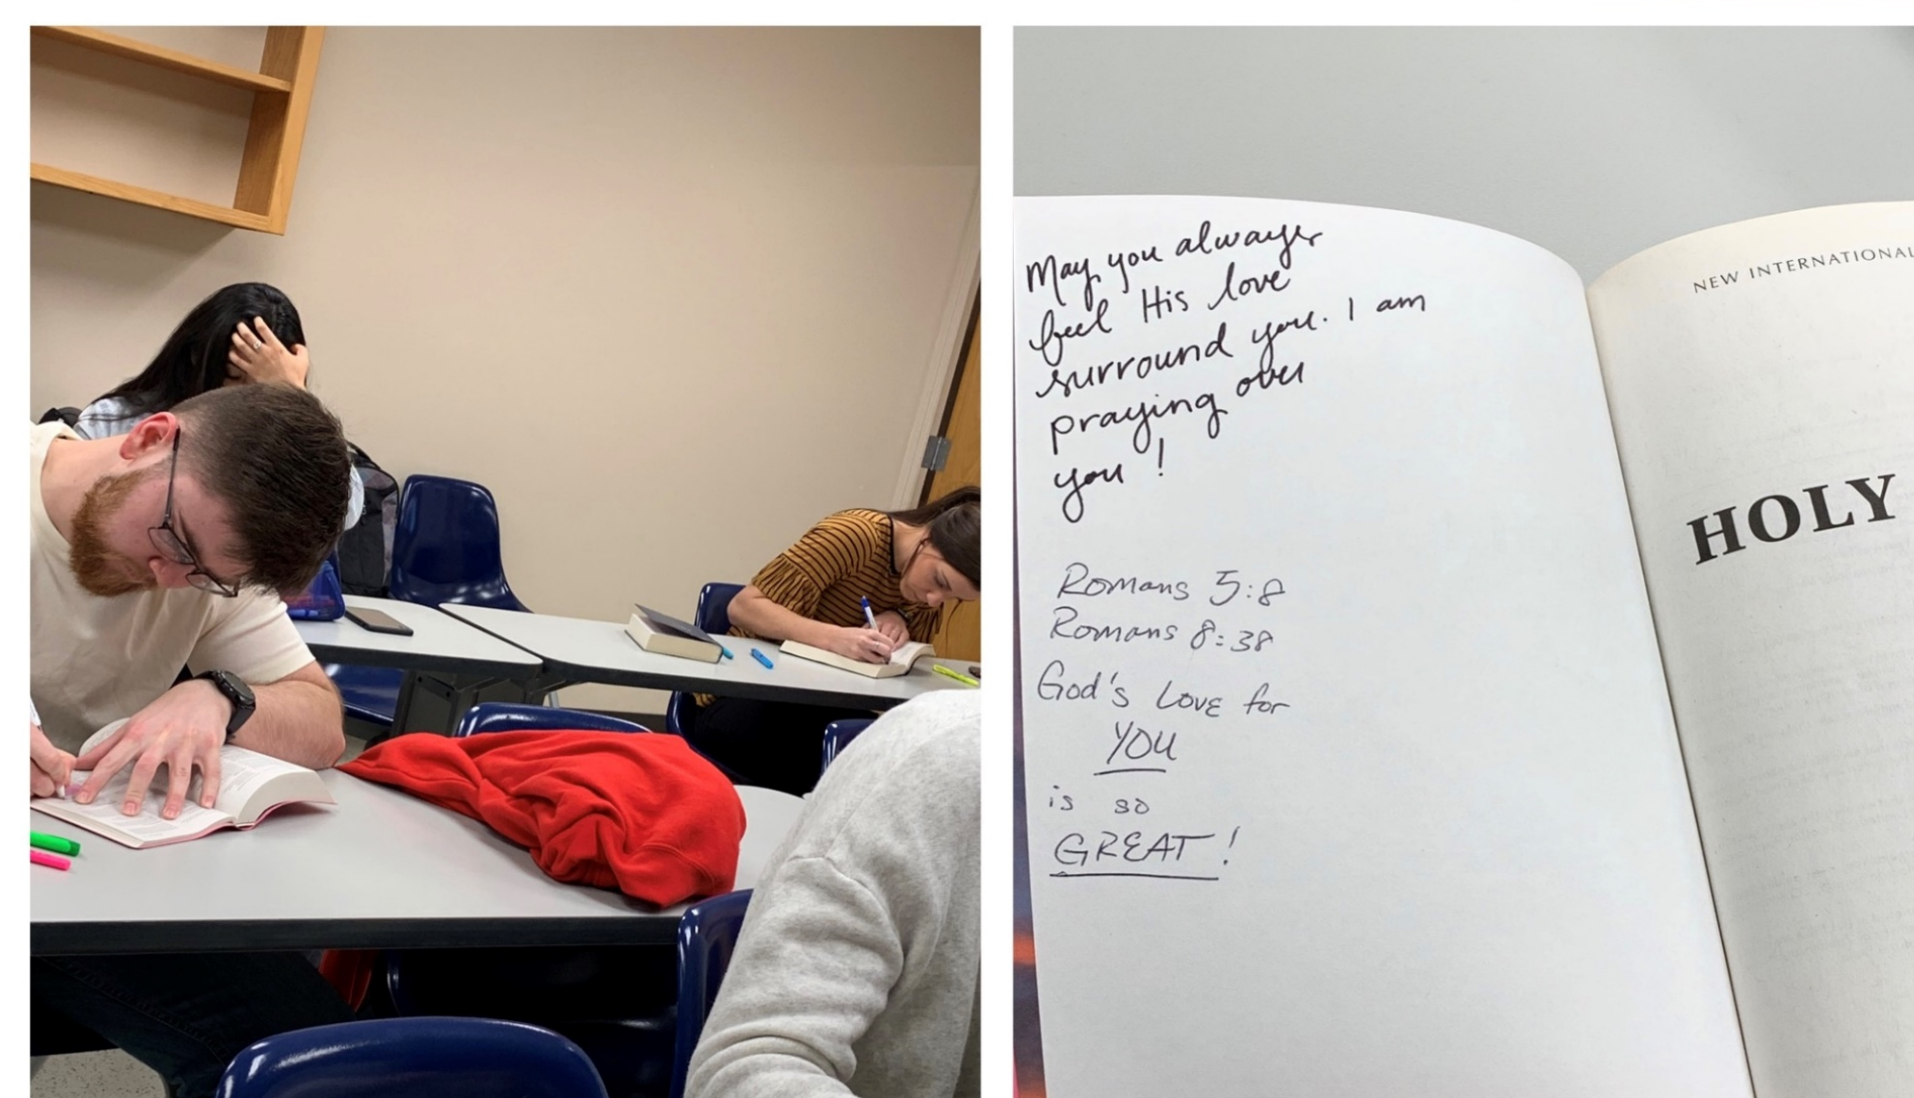 May you always
feel His love
surround you. I am
praying over
you!
Romans 5:8
Romans 8:38
God's Love for
YOU
is so
GREAT!
NEW INTERNATIONAL
HOLY